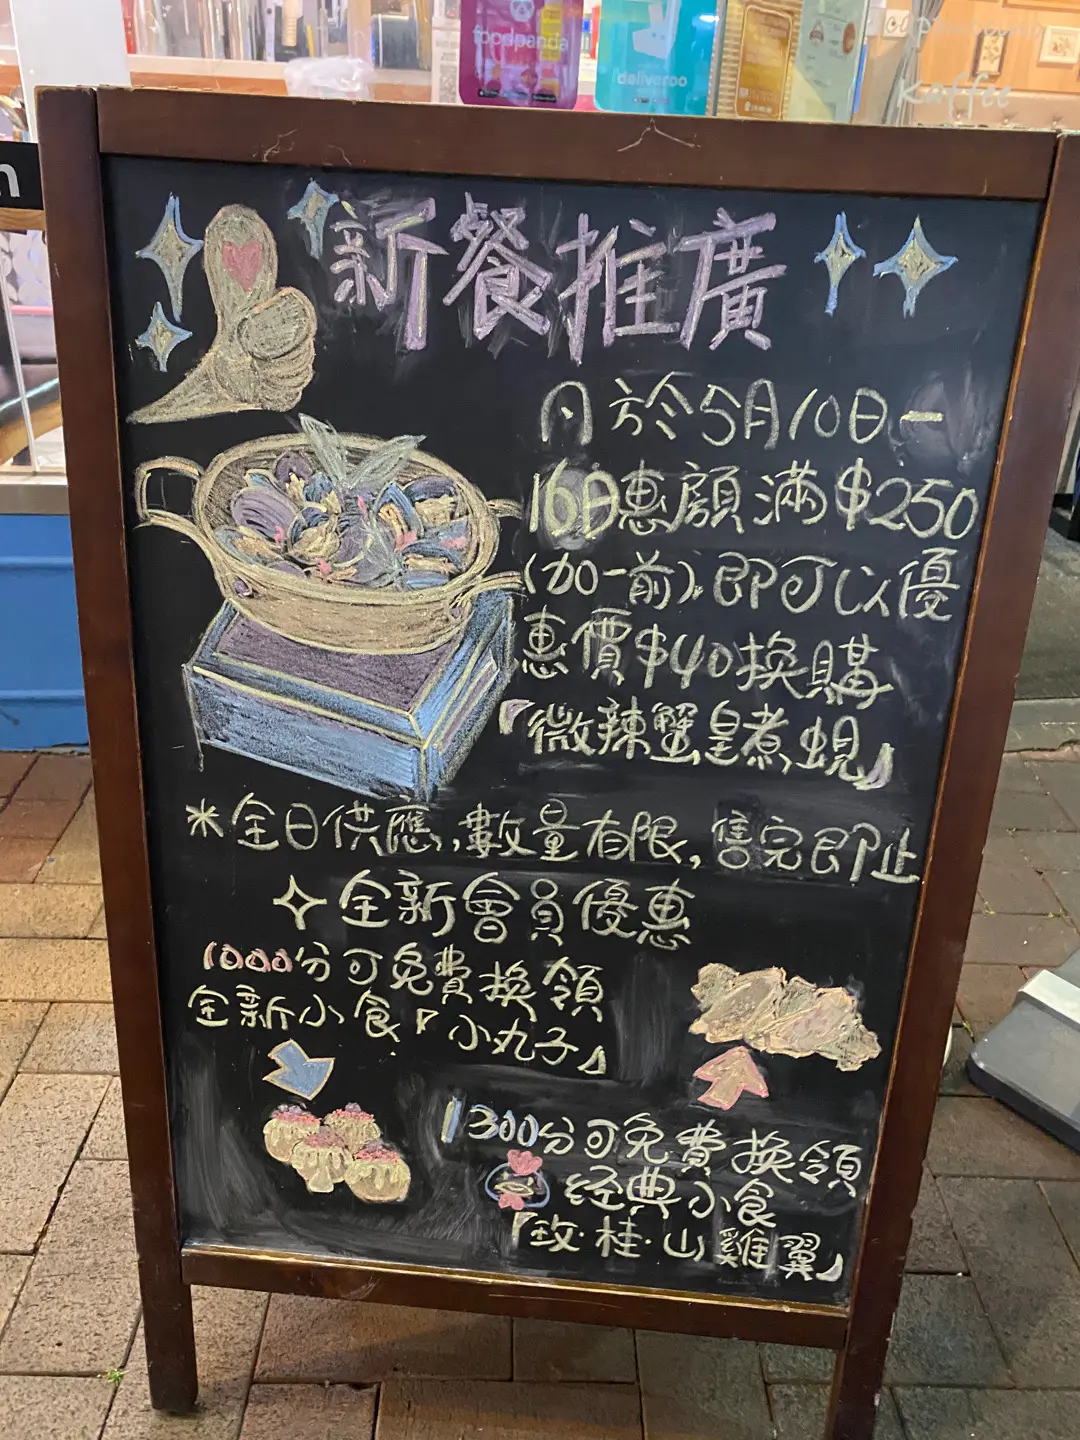 foodpanda
deliveroo
Kaffee
新餐推廣
凡於5月10日一
16日惠顧滿$250
(加一前),即可以優
惠價$40換購
『微辣蟹皇煮蜆』
*全日供應,數量有限,售完即止
全新會員優惠
1000分可免費換領
全新小食『小丸子』
1300分可免費換領
经典小食
『玫·桂·山雞翼』